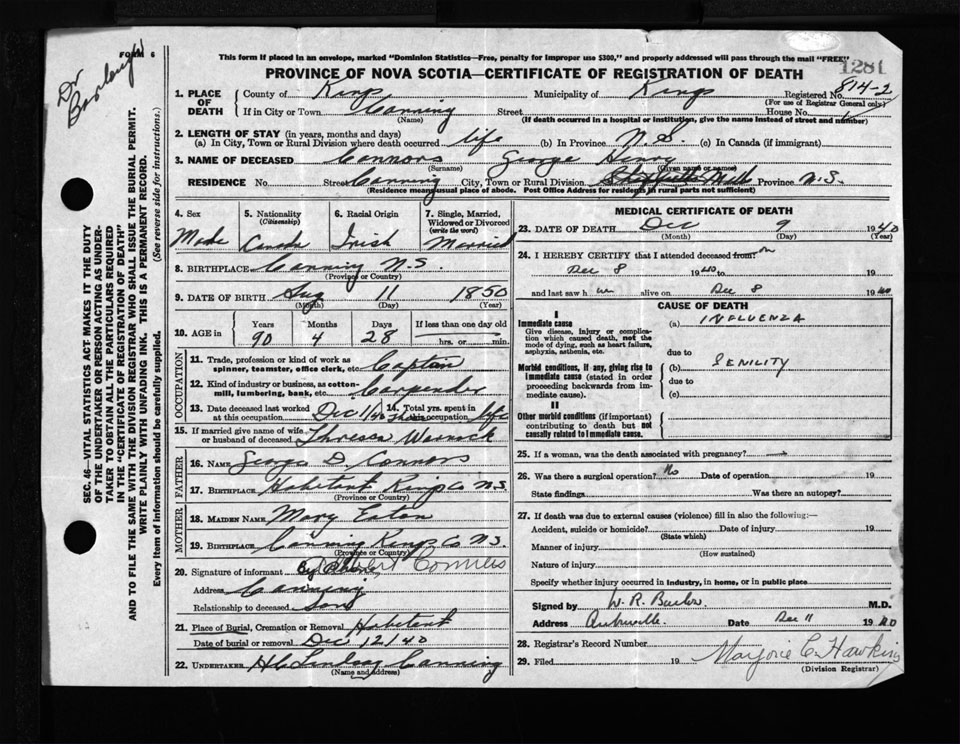 Dr
FORM 6
SEC. 46—VITAL STATISTICS ACT MAKES IT THE DUTY
OF THE UNDERTAKER OR PERSON ACTING AS UNDER-
TAKER TO OBTAIN ALL THE PARTICULARS REQUIRED
IN THE "CERTIFICATE OF REGISTRATION OF DEATH"
AND TO FILE THE SAME WITH THE DIVISION REGISTRAR WHO SHALL ISSUE THE BURIAL PERMIT.
WRITE PLAINLY WITH UNFADING INK. THIS IS A PERMANENT RECORD.
Every item of information should be carefully supplied. (See reverse side for instructions.)
This form if placed in an envelope, marked "Dominion Statistics—Free, penalty for improper use $300," and properly addressed will pass through the mail "FREE"
1281
PROVINCE OF NOVA SCOTIA—CERTIFICATE OF REGISTRATION OF DEATH
1. PLACE OF DEATH County of Kings Municipality of Kings Registered No. 814-2
(For use of Registrar General only)
If in City or Town Canning Street House No.
(Name) (If death occurred in a hospital or institution, give the name instead of street and number)
2. LENGTH OF STAY (in years, months and days)
(a) In City, Town or Rural Division where death occurred life (b) In Province N.S. (c) In Canada (if immigrant)
3. NAME OF DECEASED Connors George Henry
(Surname) (Given name or names)
RESIDENCE No. Street Canning City, Town or Rural Division Province N.S.
(Residence means usual place of abode. Post Office Address for residents in rural parts not sufficient)
4. Sex Male
5. Nationality (Citizenship) Canada
6. Racial Origin Irish
7. Single, Married, Widowed or Divorced (write the word) Married
8. BIRTHPLACE Canning N.S.
(Province or Country)
9. DATE OF BIRTH Aug 11 1850
(Month) (Day) (Year)
10. AGE in Years 90 Months 4 Days 28 If less than one day old hrs. or min.
OCCUPATION
11. Trade, profession or kind of work as spinner, teamster, office clerk, etc.
12. Kind of industry or business, as cotton-mill, lumbering, bank, etc. Carpender
13. Date deceased last worked at this occupation Dec 1/40
14. Total yrs. spent in this occupation life
15. If married give name of wife or husband of deceased Thressa Warnock
FATHER
16. Name George D. Connors
17. Birthplace Habitant Kings Co N.S.
(Province or Country)
MOTHER
18. Maiden Name Mary Eaton
19. Birthplace Canning Kings Co N.S.
(Province or Country)
20. Signature of informant Connors
Address Canning
Relationship to deceased Son
21. Place of Burial, Cremation or Removal Habitant
Date of burial or removal Dec 12/40
22. UNDERTAKER Canning
(Name and address)
MEDICAL CERTIFICATE OF DEATH
23. DATE OF DEATH Dec 9 1940
(Month) (Day) (Year)
24. I HEREBY CERTIFY that I attended deceased from on
Dec 8 1940 to 19
and last saw h im alive on Dec 8 1940
CAUSE OF DEATH
I
Immediate cause
Give disease, injury or complication which caused death, not the mode of dying, such as heart failure, asphyxia, asthenia, etc.
(a) INFLUENZA
due to
Morbid conditions, if any, giving rise to immediate cause (stated in order proceeding backwards from immediate cause).
(b) SENILITY
due to
(c)
II
Other morbid conditions (if important) contributing to death but not causally related to immediate cause.
25. If a woman, was the death associated with pregnancy? —
26. Was there a surgical operation? No Date of operation 19
State findings Was there an autopsy?
27. If death was due to external causes (violence) fill in also the following:—
Accident, suicide or homicide? Date of injury 19
(State which)
Manner of injury
(How sustained)
Nature of injury
Specify whether injury occurred in industry, in home, or in public place
Signed by W. R. M.D.
Address Date Dec 11 1940
28. Registrar's Record Number
29. Filed 19 Marjorie C. Hawkins
(Division Registrar)